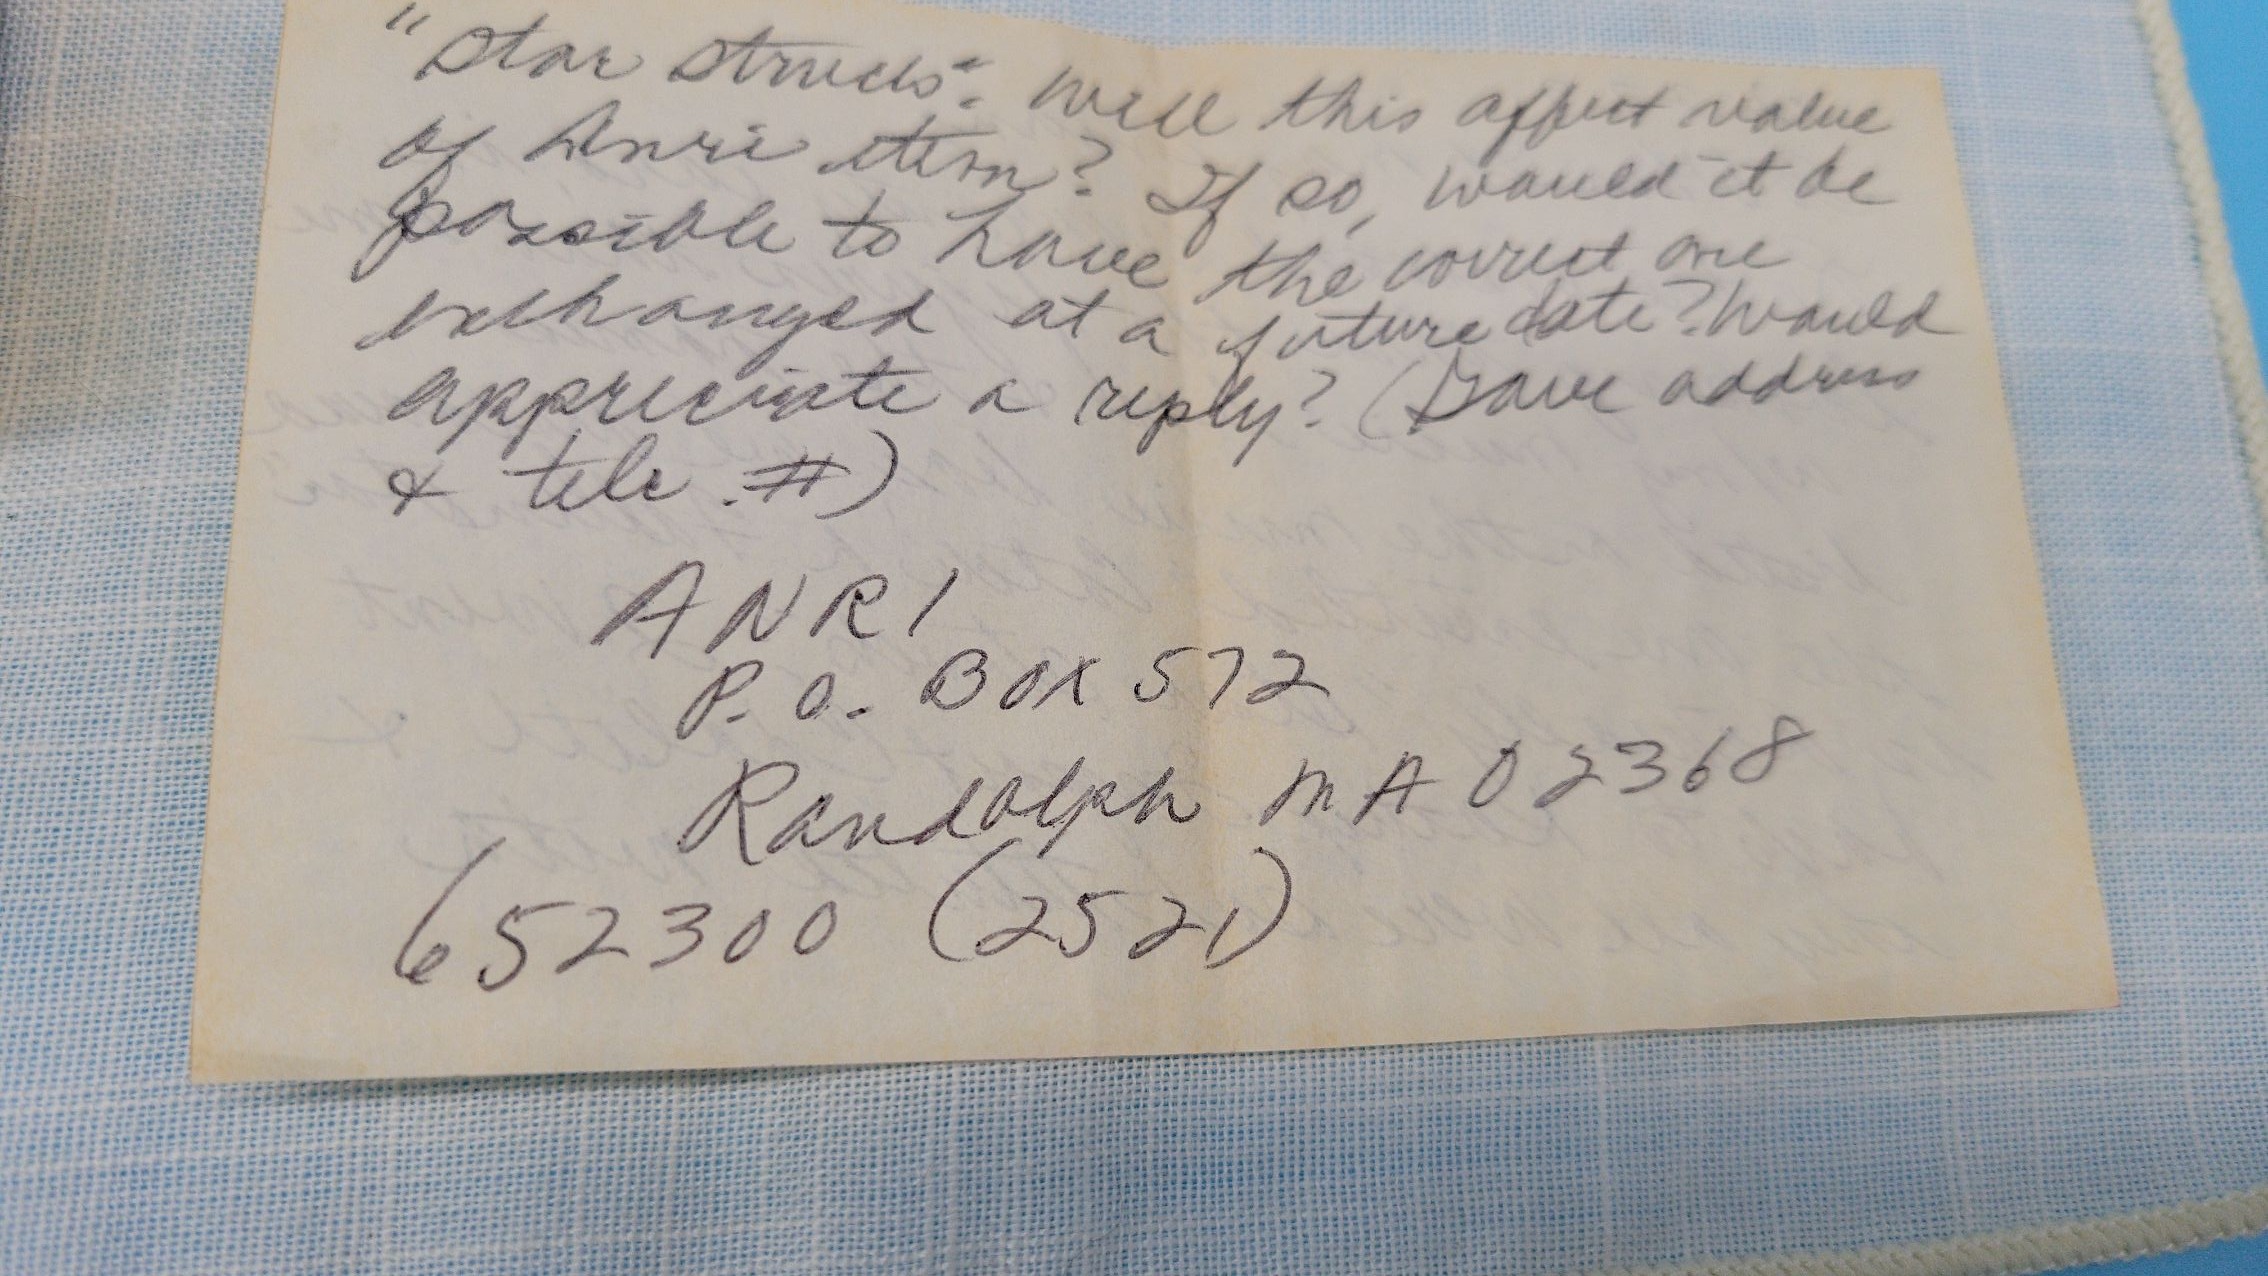 "Star Struck". Will this affect value
of Anri item? If so, would it be
possible to have the correct one
exchanged at a future date? Would
appreciate a reply? (Gave address
& tele. #)
ANRI
P.O. BOX 572
Randolph MA 02368
652300 (2521)